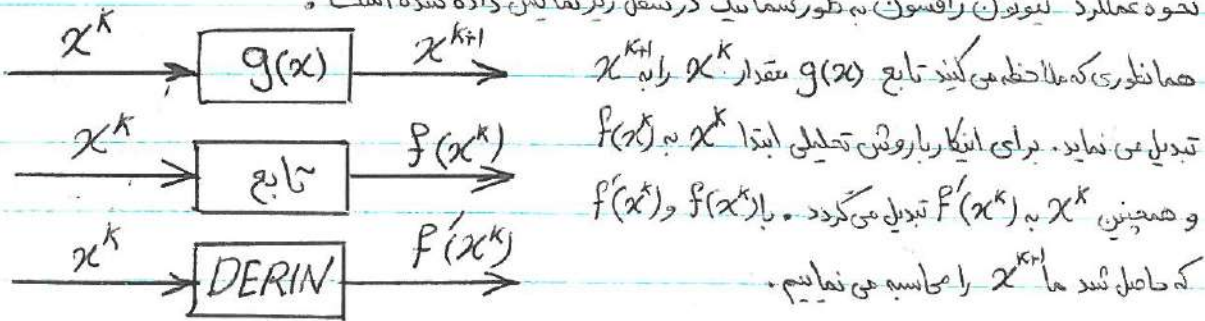 نحوه عملکرد نیوتون رافسون به طور شماتیک در شکل زیر نمایش داده شده است.
x^k g(x) x^{k+1}
همانطوری که ملاحظه می کنید تابع g(x) مقدار x^k را به x^{k+1}
x^k تابع f(x^k)
تبدیل می نماید. برای اینکار با روش تحلیلی ابتدا x^k به f(x^k)
و همچنین x^k به f'(x^k) تبدیل می گردد. با f(x^k) و f'(x^k)
x^k DERIN f'(x^k)
که حاصل شد ما x^{k+1} را محاسبه می نماییم.